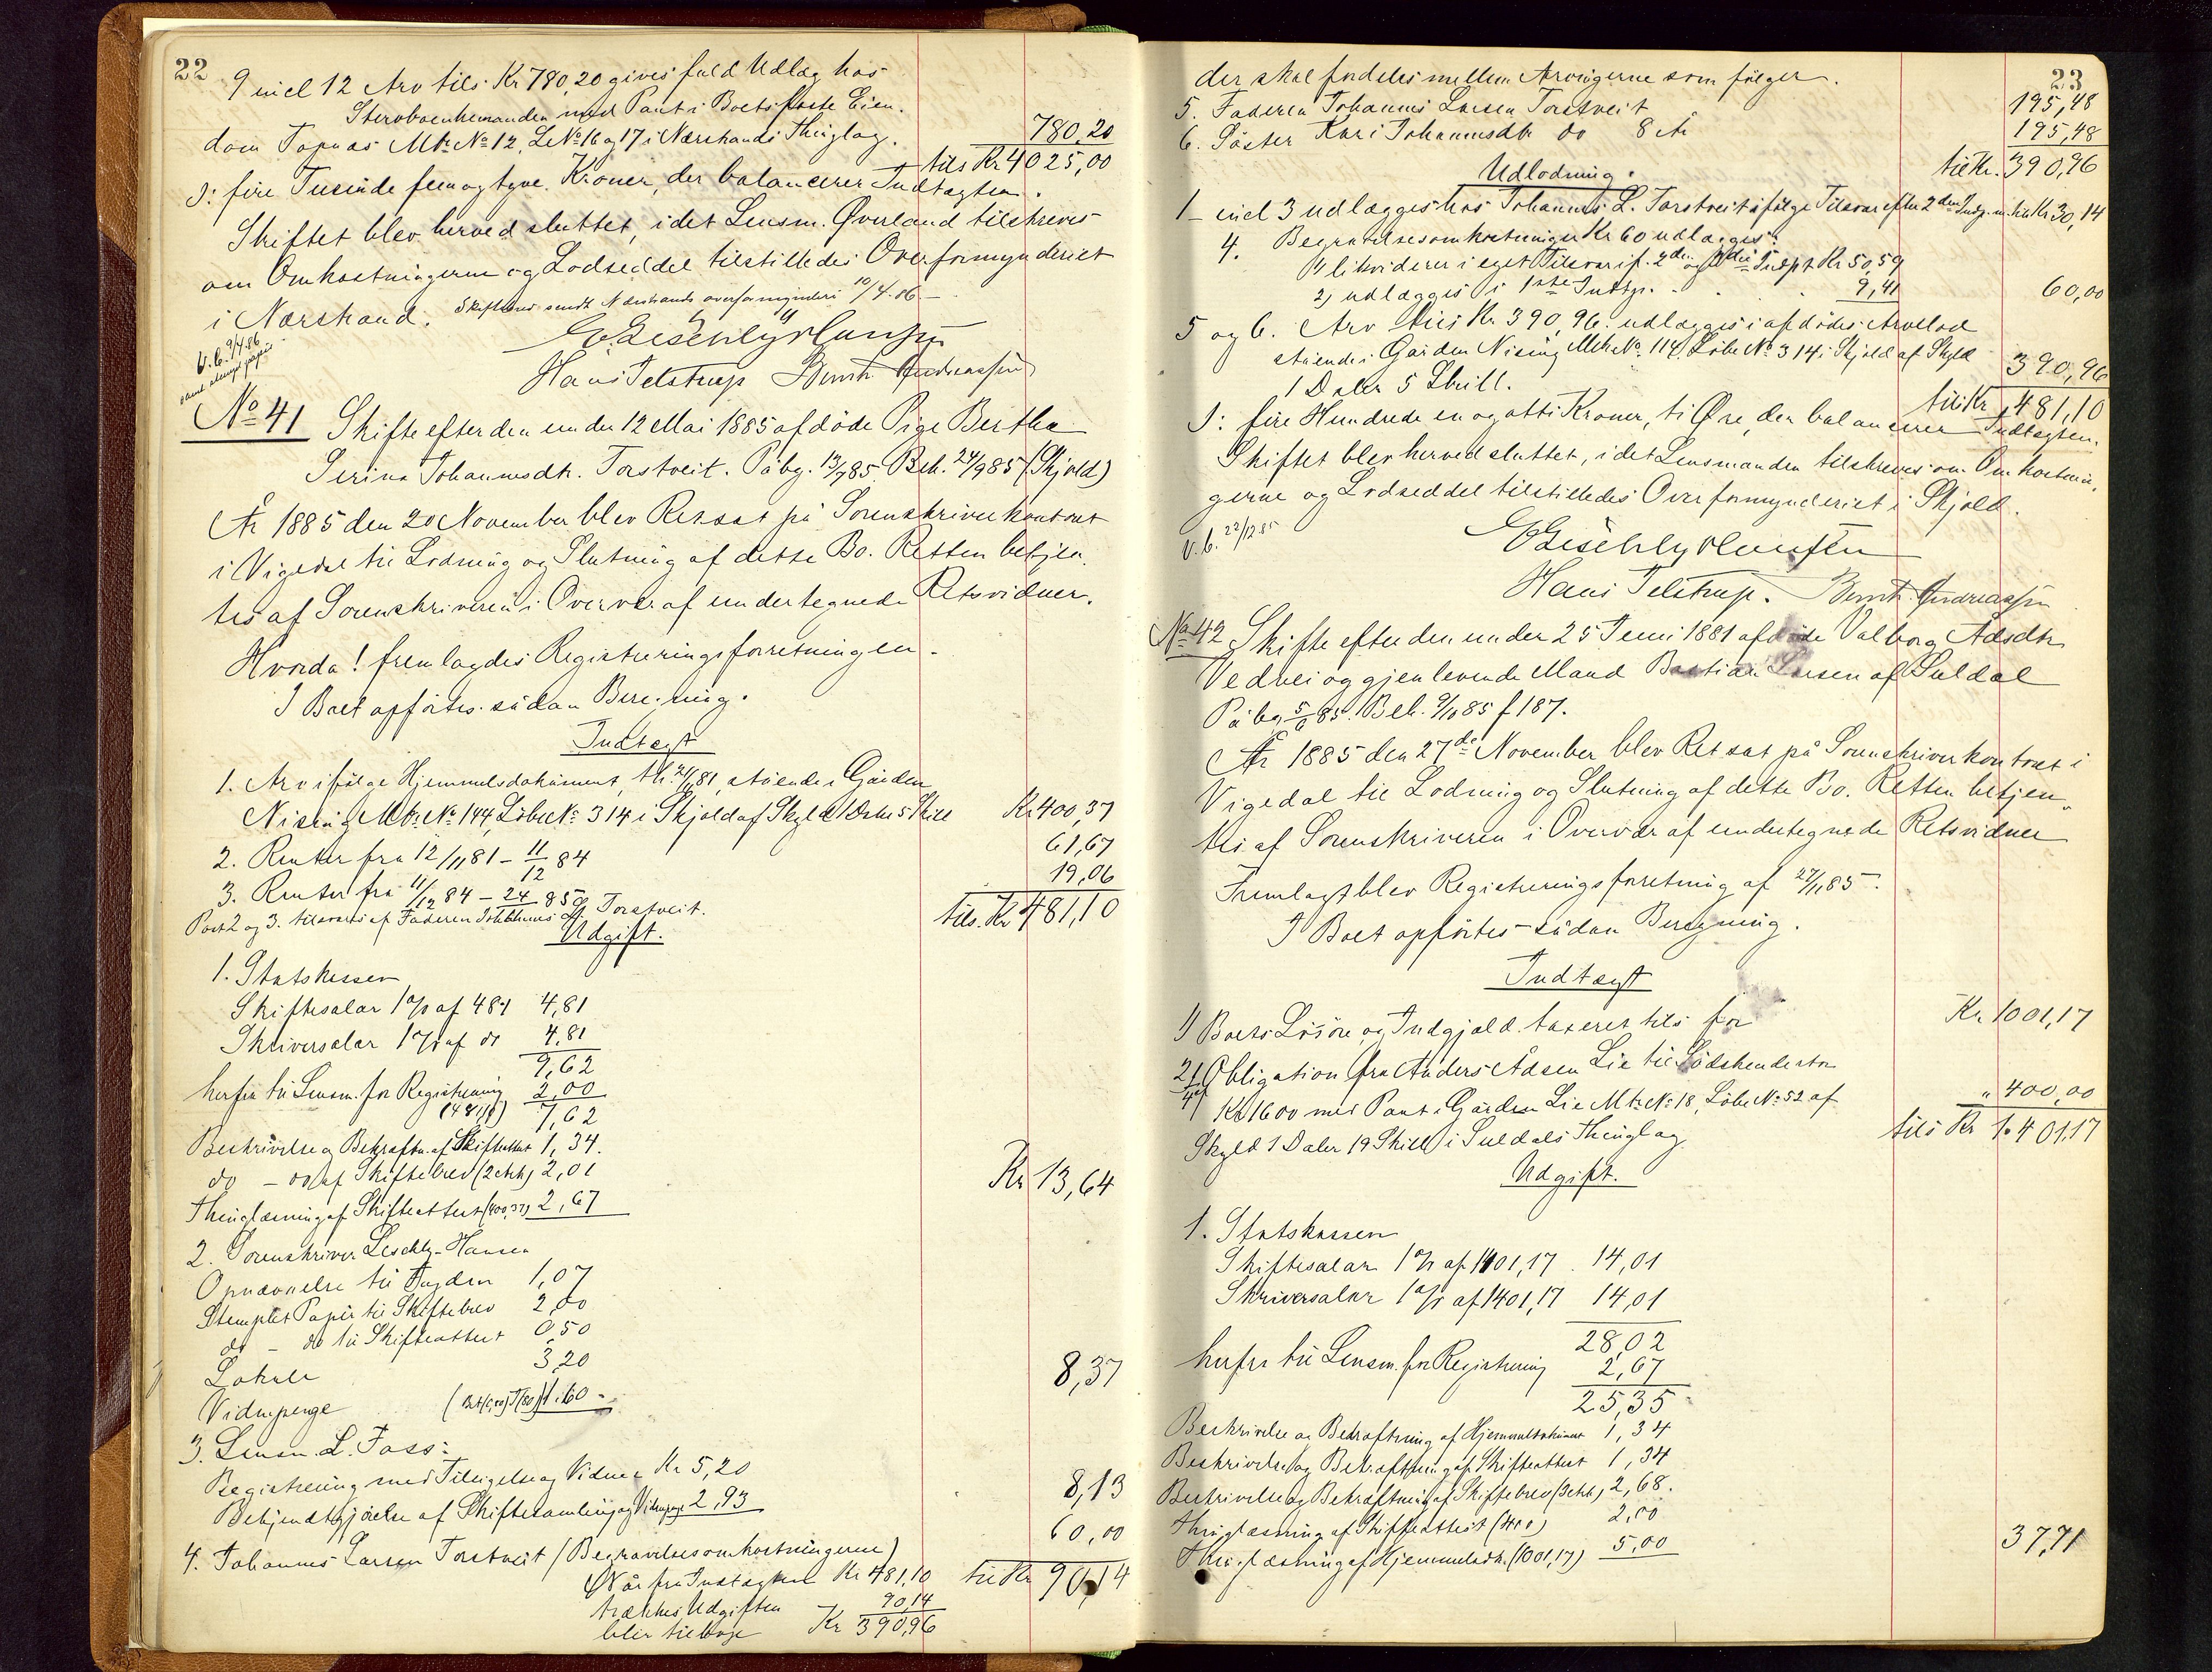 22
9 incl 12 Arv tils. Kr 780,20 gives fuld Udlæg hos
Sterboenkemanden med Pant i Boets faste Eien-
dom Topnæs Mtr. No 12, L. No 16 og 17 i Nærstrands Thinglag. 780,20
tils Kr 4025,00
D: fire Tusinde fem og tyve Kroner, der balancerer Indtægten.
Skiftet blev herved sluttet, idet Lensm. Øverland tilskreves
om Omkostningerne og Lodseddel tilstilledes Overformynderiet
i Nærstrand. Skiftebrev sendt Nærstrands overformynderi 10/4.86 –
V.b. 9/4.86
samt stempl. papir
E. Zeschly Hansen
Hans Telstrup Bernt Andreassen
No 41 Skifte efter den under 12 Mai 1885 afdöde Pige Bertha
Serina Johannesdtr. Torstveit. Påbg. 13/7 85 Beh. 24/9 85 (Skjold)
År 1885 den 20 November blev Ret sat på Sorenskriverkontoret
i Vigedal til Lodning og Slutning af dette Bo. Retten betjen-
tes af Sorenskriveren i Overvær af undertegnede Retsvidner.
Hvorda! fremlagdes Registreringsforretningen.
I Boet opförtes sådan Beregning.
Indtægt
1. Arv ifölge Hjemmelsdokument, th. 21/11 81, stående i Gården
Nising Mtr. No 144, Löbe No 314 i Skjold af Skyld 1 Daler 5 Skill Kr 400,37
2. Renter fra 12/11 81 – 11/12 84 61,67
3. Renter fra 11/12 84 – 24/9 85 19,06
Post 2 og 3. tilsvares af Faderen Johannes L. Torstveit. tils. Kr 481,10
Udgift.
1. Statskassen
Skiftesalar 1 % af 481 4,81
Skriversalar 1 % af do 4,81
9,62
herfra til Lensm. for Registrering 2,00
7,62
Beskrivelse og Bekræftn. af Skifteattest 1,34.
do – do af Skiftebrev (2 Ark) 2,01
Thinglæsning af Skifteattest (400,37) 2,67
Kr 13,64
2. Sorenskriver Zeschly-Hansen
Opnævnelse til Fogden 1,07
Stemplet Papir til Skiftebrev 2,00
do – do til Skifteattest 0,50
Lokale 3,20
Vidnepenge 1.60
8,37
3. Lensm. L. Foss:
Registrering med Tilsigelse og Vidner Kr 5,20
Bekjendtgjörelse af Skiftesamling og Vidnepenge 2,93
8,13
4. Johannes Larsen Torstveit (Begravelsesomkostningerne) 60,00
til Kr 90,14
Når fra Indtægten Kr 481,10
trækkes Udgiften 90,14
blir tilbage Kr 390,96
23
der skal fordeles mellem Arvingerne som fölger.
5. Faderen Johannes Larsen Torstveit 195,48
6. Söster Kari Johannesdtr do 8 År 195,48
til Kr. 390,96
Udlodning.
1 – incl 3 udlægges hos Johannes L. Torstveit ifölge Tilsvar efter 2den Indg. m. tils Kr 30,14
4. Begravelsesomkostninger Kr 60 udlægges:
1) likviderer i eget Tilsvar if. 2den og 3die Indpt Kr 50,59
2) udlægges i 1ste Indtp. 9,41 60,00
5 og 6. Arv tils Kr. 390,96. udlægges i afdödes Arvelod
stående i Gården Nising Mtr. No. 114, Löbe No 314 i Skjold af Skyld
1 Daler 5 Skill. 390,96
til Kr 481,10
D: fire Hundrede en og otti Kroner, ti Øre, der balancerer Indtægten.
Skiftet blev herved sluttet, idet Lensmanden tilskreves om Omkostnin-
gerne og Lodseddel tilstilledes Overformynderiet i Skjold.
V.b. 22/12 85
E Zeschly Hansen
Hans Telstrup. Bernt Andreassen
No 42 Skifte efter den under 25 Juni 1881 afdöde Valborg Adsdtr
Vedvei og gjenlevende Mand Bastian Larsen af Suldal
Påbg 5/6 85. Beh. 9/10 85 f 187.
År 1885 den 27de November blev Ret sat på Sorenskriverkontoret i
Vigedal til Lodning og Slutning af dette Bo. Retten betjen-
tes af Sorenskriveren i Overvær af undertegnede Retsvidner
Fremlagt blev Registreringsforretning af 27/11 85.
I Boet opförtes sådan Beregning.
Indtægt
1) Boets Lösöre og Indgjæld taxeret tils for Kr. 1001,17
2) Obligation fra Anders Ådsen Lie til
Kr 1600 med Pant i Gården Lie Mtr. No 18, Löbe No 52 af „ 400,00
Skyld 1 Daler 19 Skill i Suldals Thinglag tils Kr 1401,17
Udgift.
1. Statskassen
Skiftesalar 1 % af 1401,17 14,01
Skriversalar 1 % af 1401,17 14,01
28,02
herfra til Lensm. for Registrering 2,67
25,35
Beskrivelse og Bekræftning af Hjemmelsdokument 1,34
Beskrivelse og Bekræftning af Skifteattest 1,34
Beskrivelse og Bekræftning af Skiftebrev (3 Ark) 2,68.
Thinglæsning af Skifteattest (400) 2,00
Thinglæsning af Hjemmelsdk. (1001,17) 5,00
37,71